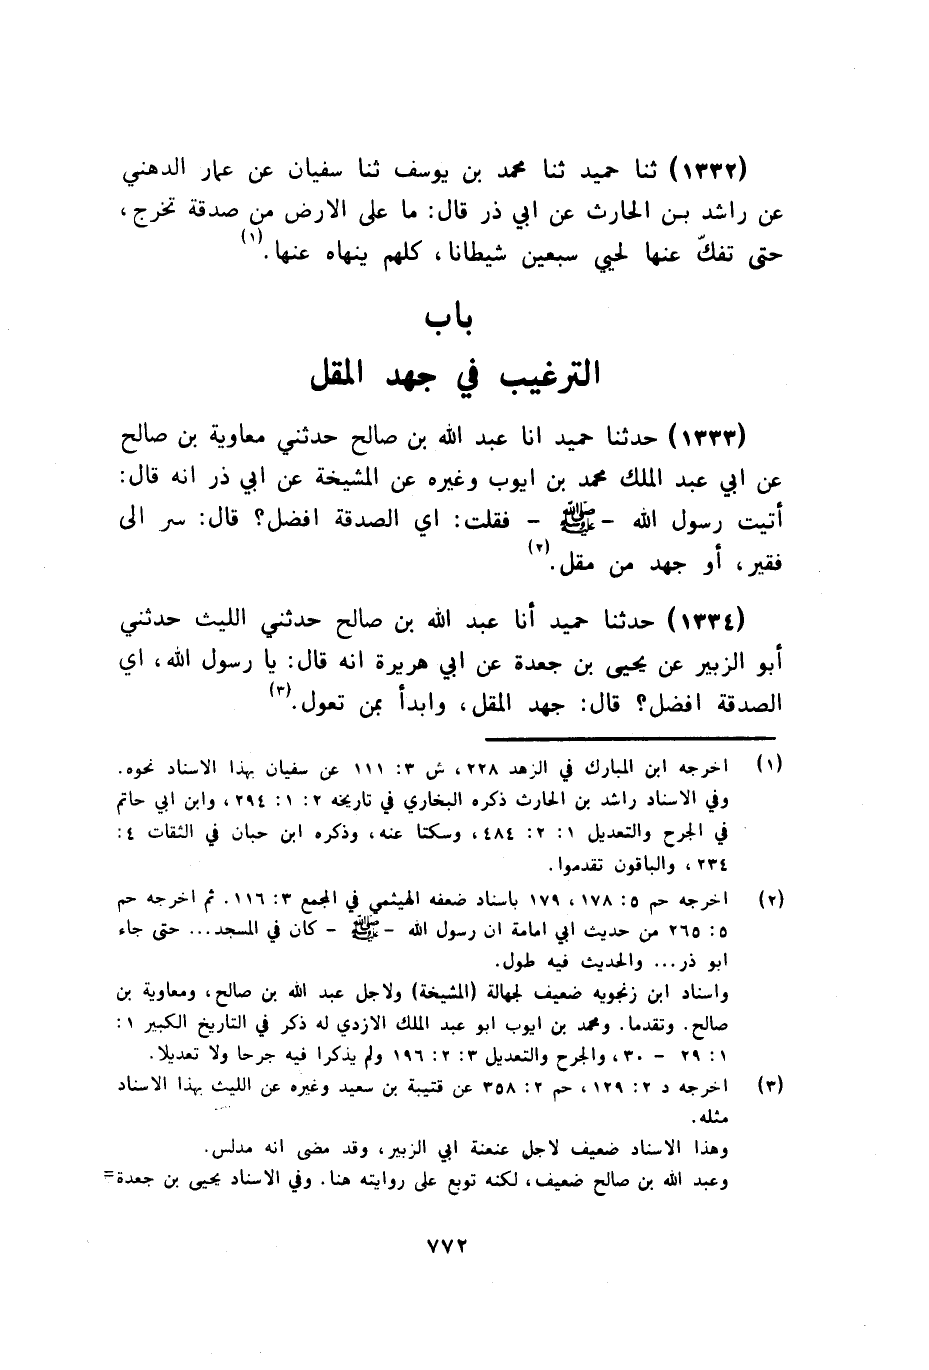 (١٣٣٢) ثنا حميد ثنا محمد بن يوسف ثنا سفيان عن عمار الدهني
عن راشد بن الحارث عن ابي ذر قال: ما على الارض من صدقة تخرج،
حتى تفكّ عنها لحيي سبعين شيطانا، كلهم ينهاه عنها.(١)
باب
الترغيب في جهد المقل
(١٣٣٣) حدثنا حميد انا عبد الله بن صالح حدثني معاوية بن صالح
عن ابي عبد الملك محمد بن ايوب وغيره عن المشيخة عن ابي ذر انه قال:
أتيت رسول الله - ﷺ - فقلت: اي الصدقة افضل؟ قال: سر الى
فقير، أو جهد من مقل.(٢)
(١٣٣٤) حدثنا حميد أنا عبد الله بن صالح حدثني الليث حدثني
أبو الزبير عن يحيى بن جعدة عن ابي هريرة انه قال: يا رسول الله، اي
الصدقة افضل؟ قال: جهد المقل، وابدأ بمن تعول.(٣)
(١) اخرجه ابن المبارك في الزهد ٢٢٨، ش ٣: ١١١ عن سفيان بهذا الاسناد نحوه.
وفي الاسناد راشد بن الحارث ذكره البخاري في تاريخه ٢: ١: ٢٩٤، وابن ابي حاتم
في الجرح والتعديل ١: ٢: ٤٨٤، وسكتا عنه، وذكره ابن حبان في الثقات ٤:
٢٣٤، والباقون تقدموا.
(٢) اخرجه حم ٥: ١٧٨، ١٧٩ باسناد ضعفه الهيثمي في المجمع ٣: ١١٦. ثم اخرجه حم
٥: ٢٦٥ من حديث ابي امامة ان رسول الله - ﷺ - كان في المسجد... حتى جاء
ابو ذر... والحديث فيه طول.
واسناد ابن زنجويه ضعيف لجهالة (المشيخة) ولاجل عبد الله بن صالح، ومعاوية بن
صالح. وتقدما. ومحمد بن ايوب ابو عبد الملك الازدي له ذكر في التاريخ الكبير ١:
١: ٢٩ - ٣٠، والجرح والتعديل ٣: ٢: ١٩٦ ولم يذكرا فيه جرحا ولا تعديلا.
(٣) اخرجه د ٢: ١٢٩، حم ٢: ٣٥٨ عن قتيبة بن سعيد وغيره عن الليث بهذا الاسناد
مثله.
وهذا الاسناد ضعيف لاجل عنعنة ابي الزبير، وقد مضى انه مدلس.
وعبد الله بن صالح ضعيف، لكنه توبع على روايته هنا. وفي الاسناد يحيى بن جعدة=
٧٧٢